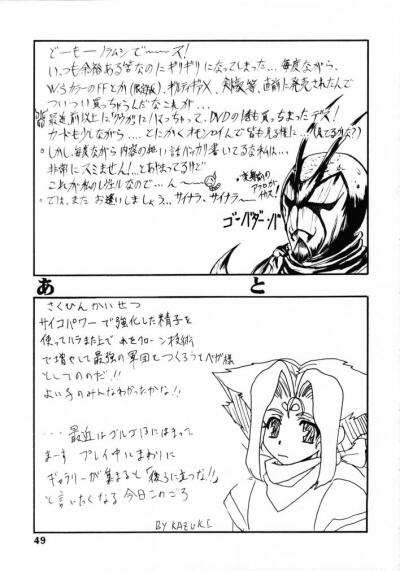 どーもー!ラムシでーース!
いつも余裕ある筈なのにギリギリになってしまった…毎度ながら、
WSカラーのFFとか(限定版)、ギルティギアX、剣豪等、直前に発売されたんで
ついつい買っちゃうんだなこれが…
最近前以上に「クウガ」にハまっちゃって、DVDの1巻も買っちまったデス!
カードも少しながら…とにかくオモシロイんで皆も見る様に…(見てるかな?)
。しかし、毎度ながら内容の無い話バッカリ書いてる私は…
非常にスミません!…とあやまってるけど
これが私のレヴェルなので…ん〜
。では、また お逢いしましょう、サイナラ、サイナラ〜
変身前の
アフロが
イカス!
ゴ・バダー・バ
あと
さくひんかいせつ
サイコパワーで強化した精子を
使ってハラませた上で それをクローン技術
で増やして最強の軍団をつくろうとベガ様
としてののだ!!
よい子のみんなわかったかな!!
...最近はゴルゴ13にはまって
まーす プレイ中にまわりに
ギャラリーが集まると「後ろに立つな!!」
と言いたくなる今日このごろ
BY KAZUKI
49